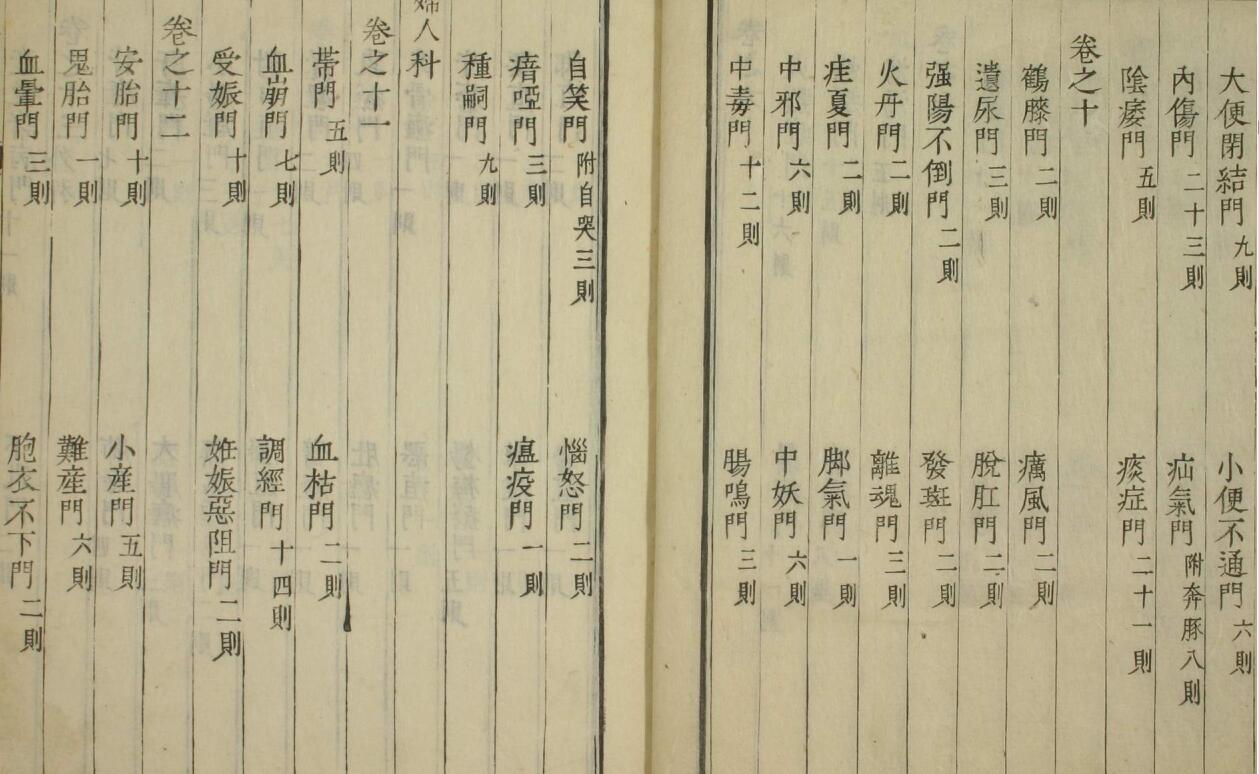 大便閉結門九則 小便不通門六則
內傷門二十三則 疝氣門附奔豚八則
陰痿門五則 痰症門二十一則
卷之十
鶴膝門二則 癘風門二則
遺尿門三則 脫肛門二則
强陽不倒門二則 發斑門二則
火丹門二則 離魂門三則
疰夏門二則 脚氣門一則
中邪門六則 中妖門六則
中毒門十二則 腸鳴門三則
自笑門附自哭三則 惱怒門二則
瘖啞門三則 瘟疫門一則
種嗣門九則
婦人科
卷之十一
帶門五則 血枯門二則
血崩門七則 調經門十四則
受娠門十則 妊娠惡阻門二則
卷之十二
安胎門十則 小產門五則
鬼胎門一則 難產門六則
血暈門三則 胞衣不下門二則